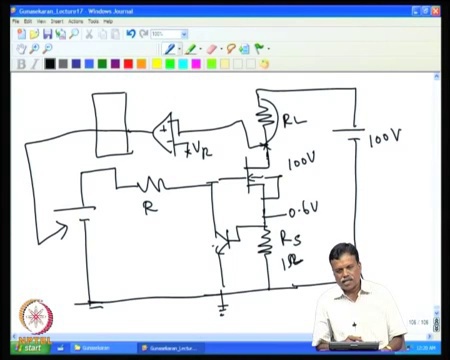 Gunasekaran_Lecture17 - Windows Journal
File Edit View Insert Actions Tools Help
100%
B I
RL
100V
+
VR
100V
R
0.6V
RS
1Ω
NPTEL
start
Gunasekaran
Gunasekaran_Lectu...